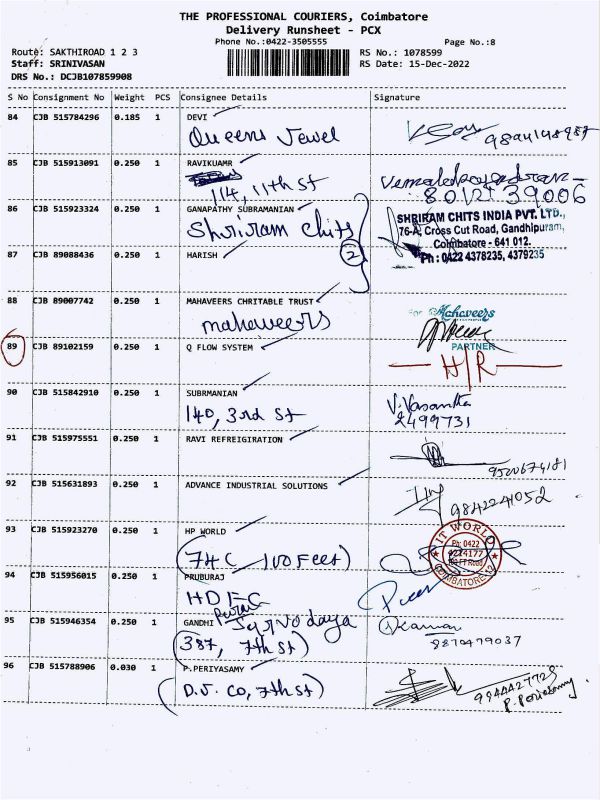 THE PROFESSIONAL COURIERS, Coimbatore
Delivery Runsheet - PCX
Phone No.:0422-3505555 Page No.:8
Route: SAKTHIROAD 1 2 3 RS No.: 1078599
Staff: SRINIVASAN RS Date: 15-Dec-2022
DRS No.: DCJB107859908
S No Consignment No Weight PCS Consignee Details Signature
84 CJB 515784296 0.185 1 DEVI
Queens Jewel
85 CJB 515913091 0.250 1 RAVIKUAMR
114, 11th st
86 CJB 515923324 0.250 1 GANAPATHY SUBRAMANIAN
Shriram chits
SHRIRAM CHITS INDIA PVT. LTD.,
76-A, Cross Cut Road, Gandhipuram,
Coimbatore - 641 012.
Ph : 0422 4378235, 4379235
87 CJB 89088436 0.250 1 HARISH
2
88 CJB 89007742 0.250 1 MAHAVEERS CHRITABLE TRUST
mahaweers
For Mahaveers
PARTNER
89 CJB 89102159 0.250 1 Q FLOW SYSTEM
H/R
90 CJB 515842910 0.250 1 SUBRMANIAN
140, 3rd st
V. Vasantha
2499731
91 CJB 515975551 0.250 1 RAVI REFREIGIRATION
92 CJB 515631893 0.250 1 ADVANCE INDUSTRIAL SOLUTIONS
9842241052
93 CJB 515923270 0.250 1 HP WORLD
(74 C 100 Feet)
IT WORLD
Ph: 0422
4274177
100 FT Road
COIMBATORE-12
94 CJB 515956015 0.250 1 PRUBURAJ
HDFC
95 CJB 515946354 0.250 1 GANDHI
Sarvodaya
(387, 7th st)
9870479037
96 CJB 515788906 0.030 1 P.PERIYASAMY
(D.J. CO, 7th st)
P. Periasamy